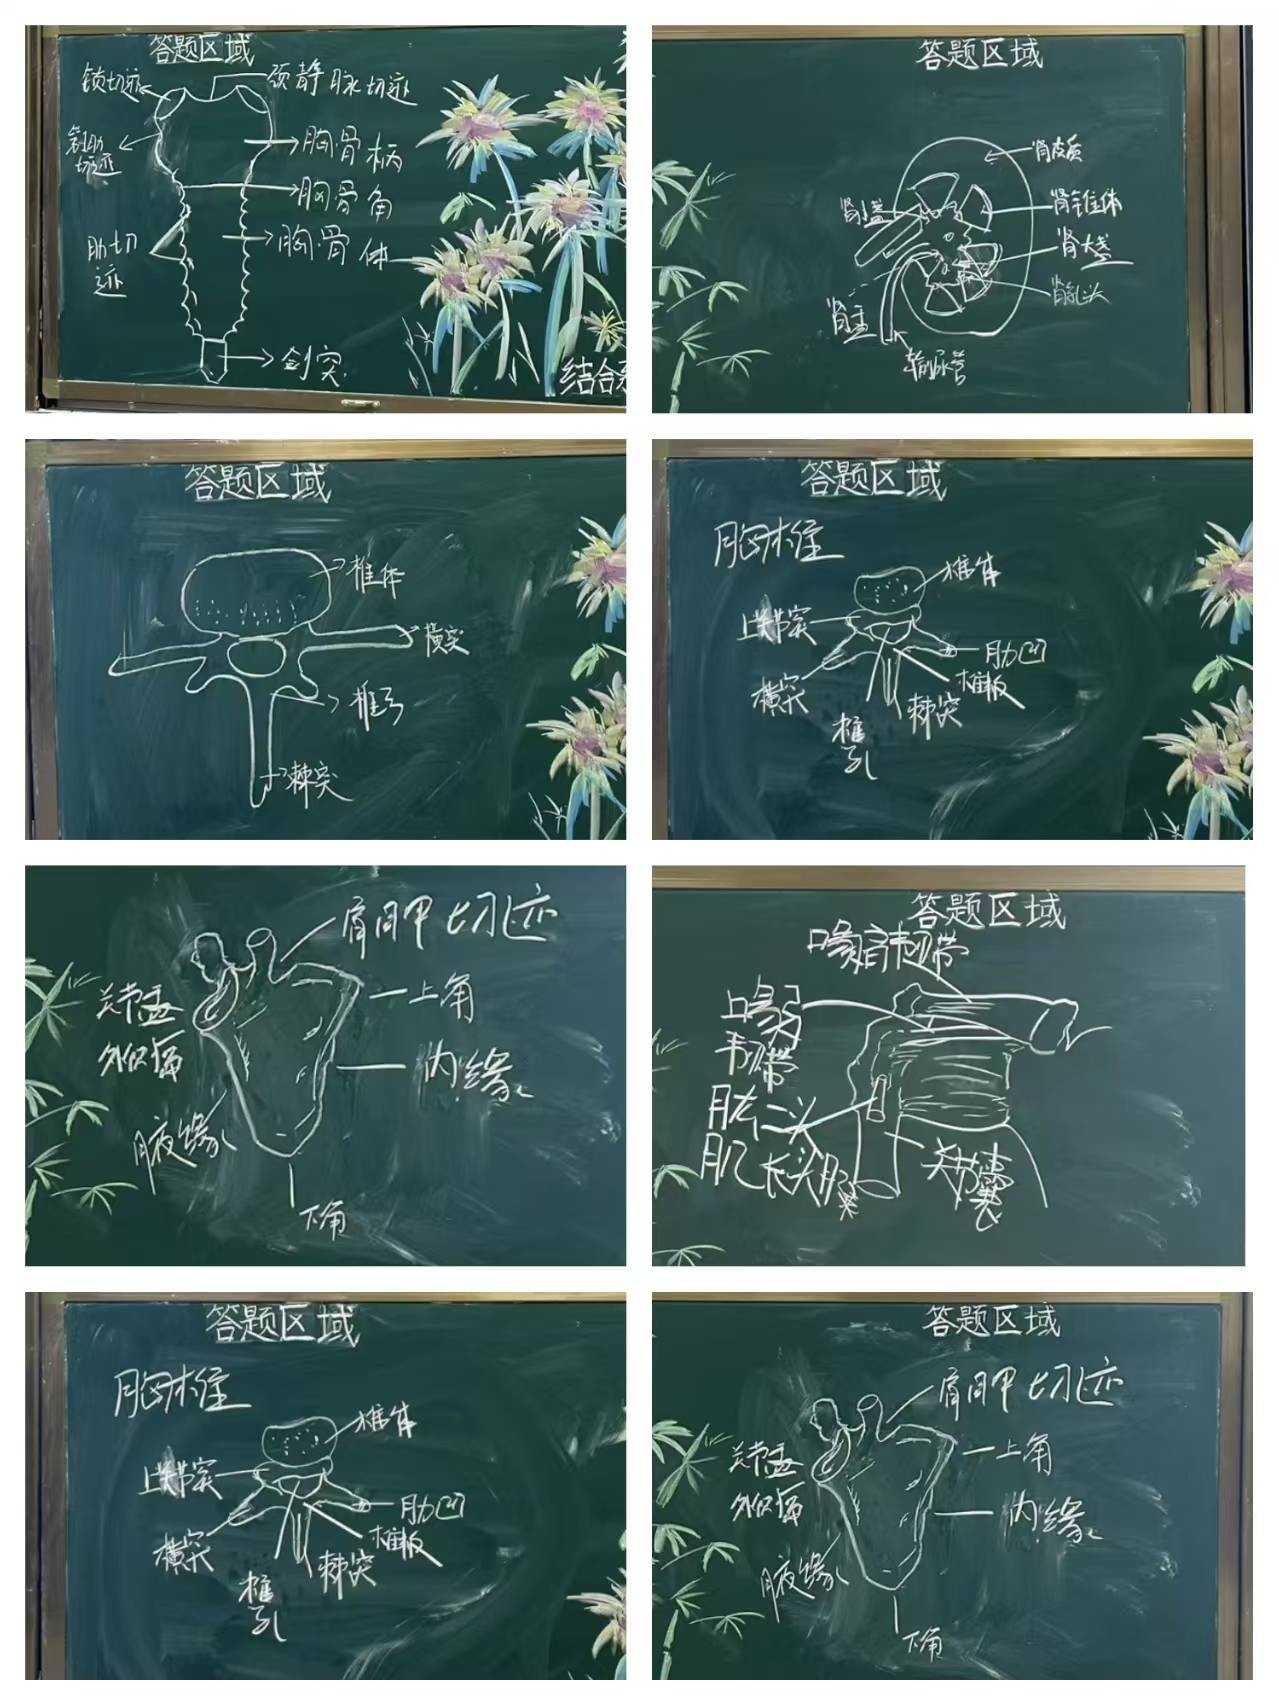 答题区域
锁切迹
颈静脉切迹
第1肋
切迹
胸骨柄
胸骨角
肋切
迹
胸骨体
剑突
结合
答题区域
肾皮质
肾小盏
肾锥体
肾大盏
肾乳头
肾盂
输尿管
答题区域
椎体
横突
椎弓
棘突
答题区域
胸椎
椎体
上关节突
肋凹
横突
椎板
棘突
椎
孔
肩胛切迹
关节盂
上角
外侧角
内缘
腋缘
下角
答题区域
喙肩韧带
喙肩
韧带
肱二头
肌长头腱
关节囊
答题区域
胸椎
椎体
上关节突
肋凹
横突
椎板
棘突
椎
孔
答题区域
肩胛切迹
关节盂
上角
外侧角
内缘
腋缘
下角